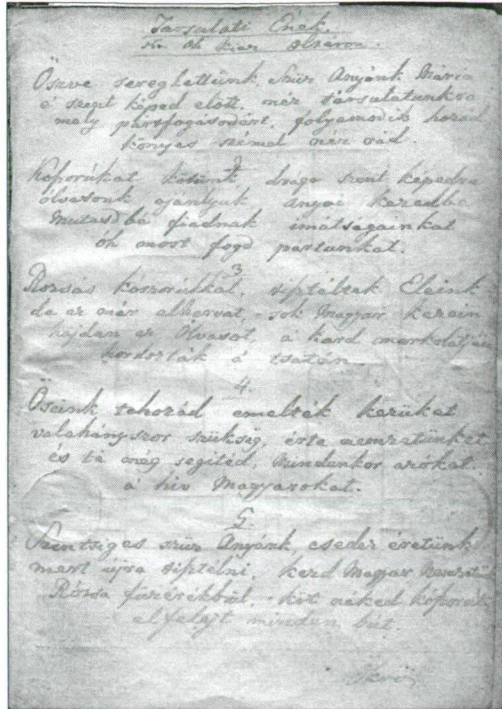 Társulati Ének.
Öszve sereglettünk, szűz Anyánk Mária
e' szegit képed előtt, néz társulatunkra
mely pártfogásodért, folyamodik hozád
könyes szémel néz rád.
Koporúkat kötünk drága szent képedre
ólvasonk ajanlyuk anyai kezedbe
Mutasd bé fiadnak imátságainkat
óh most fogd partunkat.
3
Rózsás koszorúkkal, siptéltak Eleink
de ez már alhervat, sok Magyar kezein
hajdan az Olvasót, a kard markolatján
hordozták á tsatán
4.
Őseink tehozád emelték kezüket
valahányszor szükség, érte nemzetünket
és té még segitéd, Mindenkor azokat
á hiv Magyarokat.
5
Szentséges szűz Anyánk esedez éretünk
mert újra siptélni, kezd Magyar Nemzetünk
Rózsa füzérékbül, köt néked koporút
elfelejt minden bút